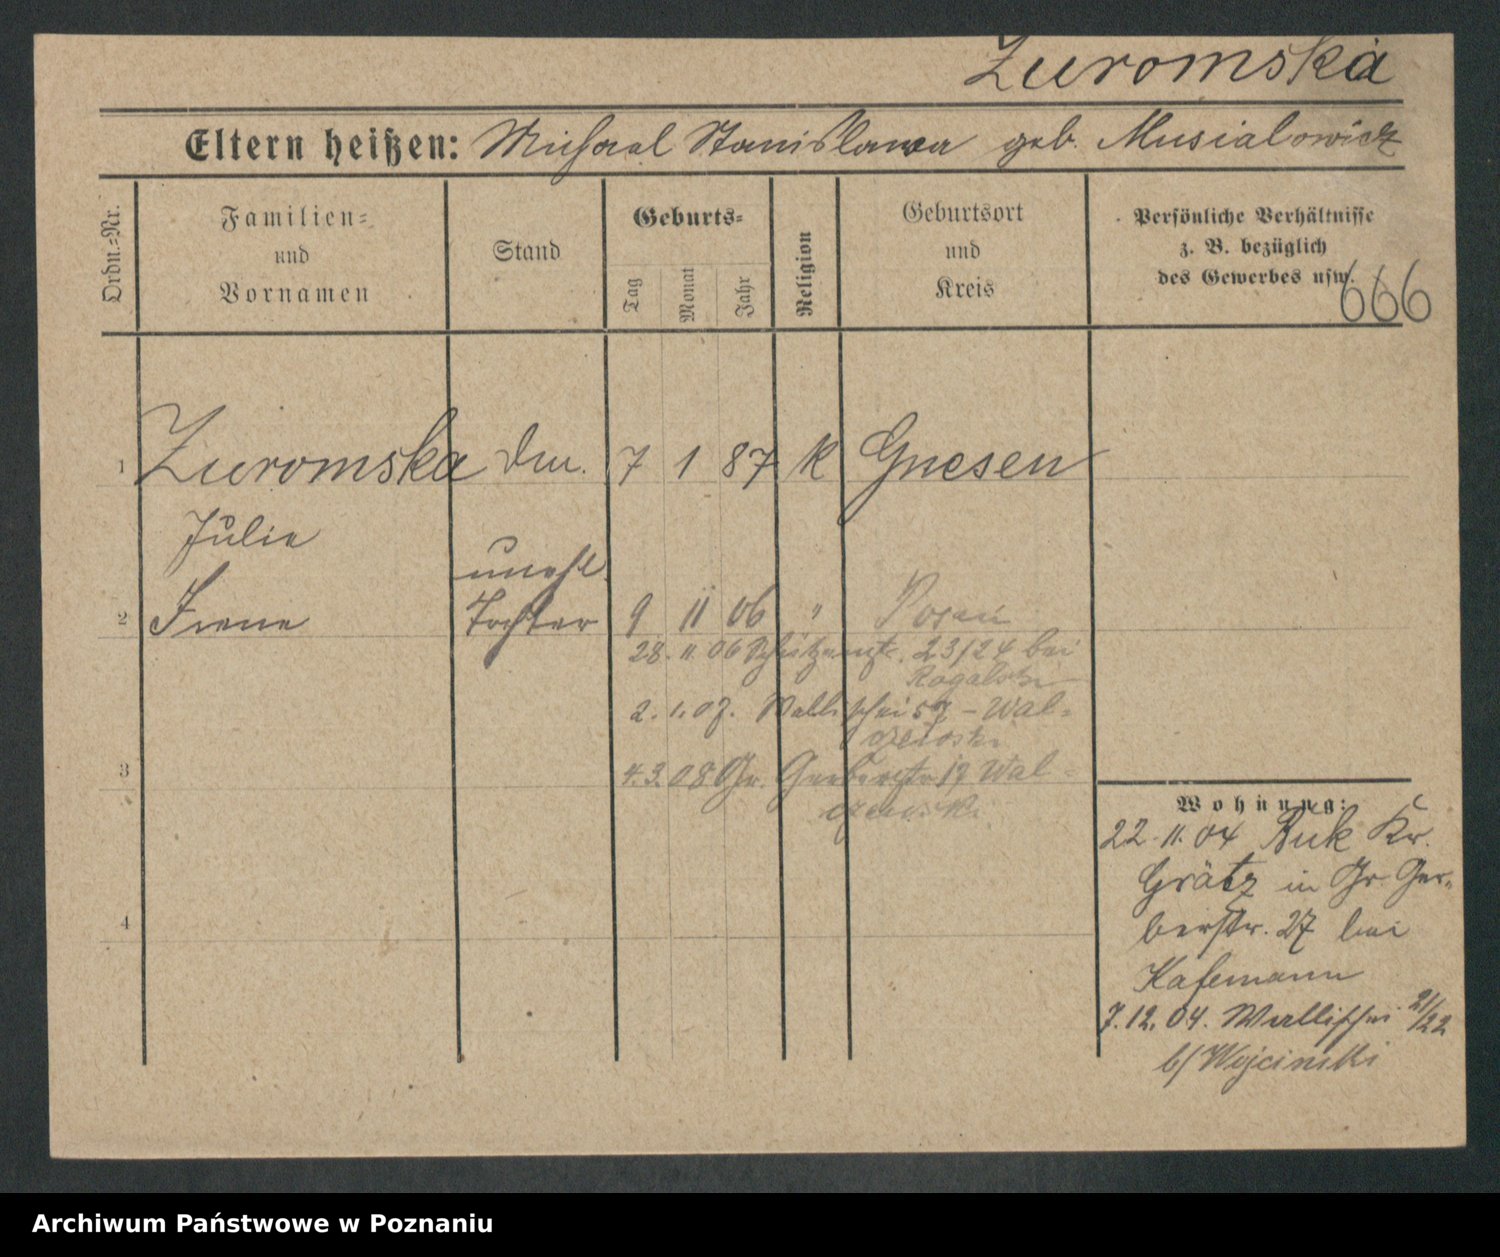 Zuromska
Eltern heißen: Michael Stanislawa geb. Musialowicz
Ordn.-Nr.
Familien-
und
Vornamen
Stand
Geburts-
Tag
Monat
Jahr
Religion
Geburtsort
und
Kreis
Persönliche Verhältnisse
z. B. bezüglich
des Gewerbes usw.
666
1 Zuromska 7 1 87 K Gnesen
Julie
unehl.
2 Irene Tochter 9 11 06 " Posen
28. 11. 06 Schützenstr. 23/24 bei
Rogalski
2. 1. 07. Wallischei 57 - Wal-
czewski
3
4. 3. 08 Gr. Gerberstr 17 Wal-
czewski
4
Wohnung:
22. 11. 04 Buk Kr.
Grätz in Gr. Ger-
berstr. 27 bei
Kafemann
7. 12. 04. Wallischei 21/22
b/ Wojcinski
Archiwum Państwowe w Poznaniu